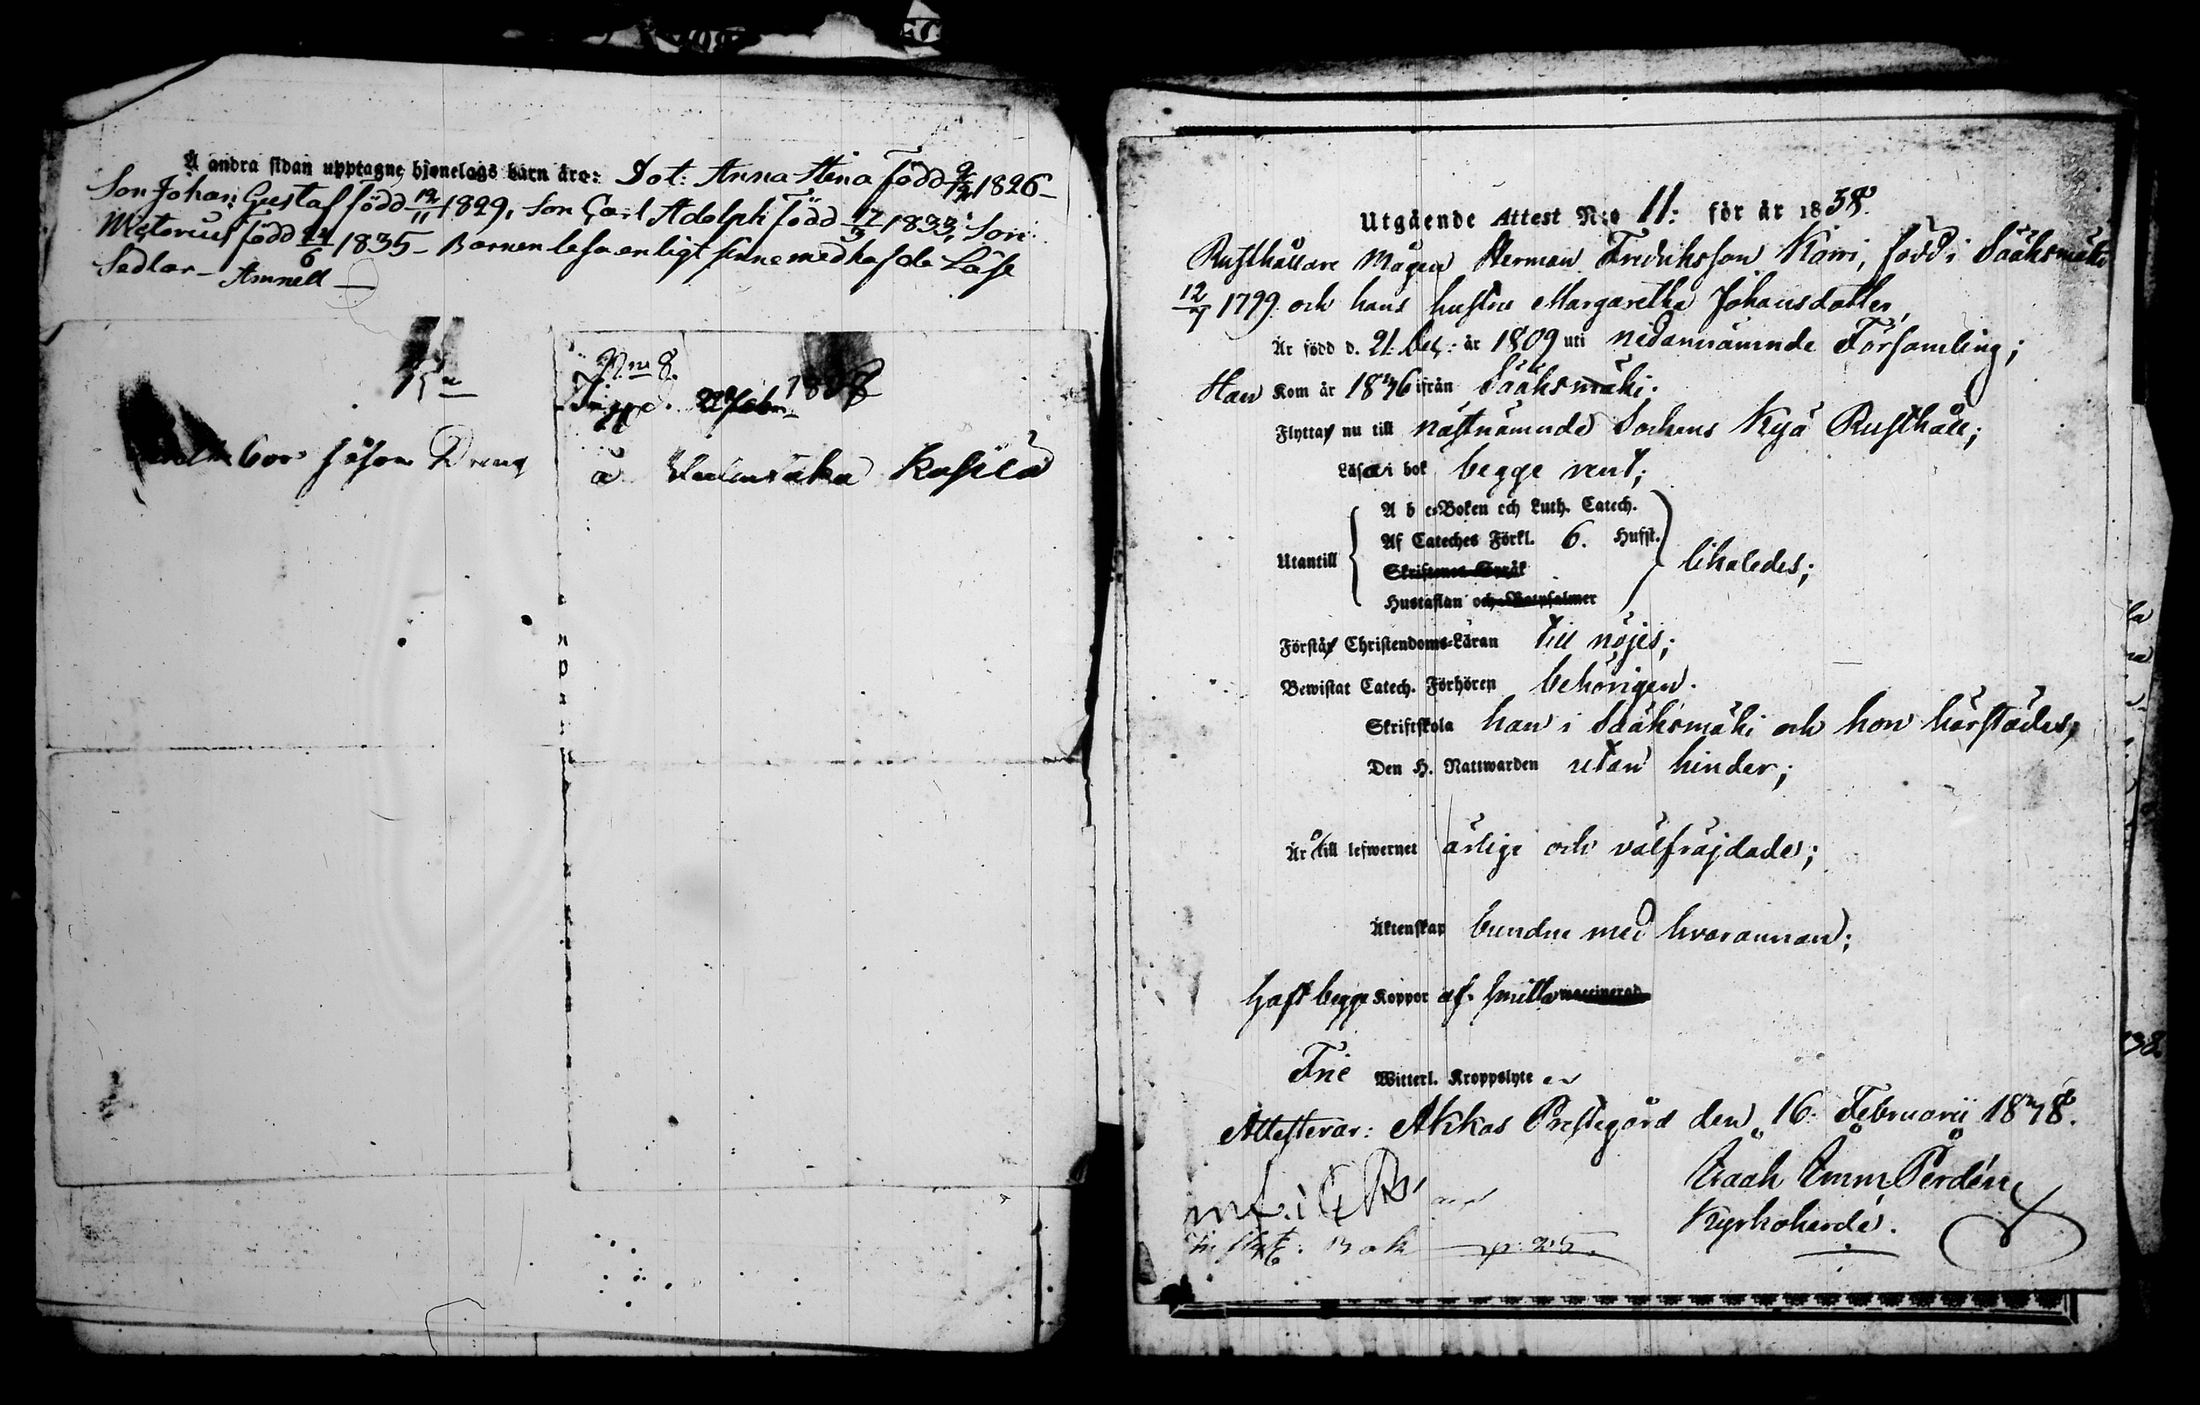 Å andra sidan upptagne hjonelags barn äro: Dot: Anna Stina född 9/12 1826 –
Son Johan Gustaf född 12/11 1829, Son Carl Adolph född 17/3 1833, Son
Victorius född 24/6 1835 – Barnen läsa enligt sinne medhafde Läse
Sedlar – Amnell
Nro 8.
1838
å Kasila
såsom Dreng
Utgående Attest N:o 11: för år 1838.
Rusthållare Mågen Herman Fredriksson Kärri, född i Sääksmäki
12/7 1799 och hans hustru Margaretha Johansdotter,
Är född d. 21. Dec: år 1809 uti nedannämnde Församling;
Han Kom år 1836 ifrån Sääksmäki;
Flytta nu till nästnämnde Sockens Kyä Rusthåll;
Läsa i bok begge rent;
A b c-Boken och Luth. Catech.
Af Cateches Förkl. 6. Hufst.
Utantill likaledes;
Skriftenes Språk
Hustaflan och Botpsalmer
Förstå Christendoms-Läran till nöjes;
Bewistat Catech. Förhören behörigen.
Skriftskola han i Sääksmäki och hon härstädes,
Den H. Nattwarden utan hinder;
Är o till lefwernet ärlige och välfräjdade;
Äktenskap bundne med hvarannan;
Haft begge Koppor af smitta waccinerad
Frie Witterl. Kroppslyte
Attesterar: Akkas Prestegård den 16. Februarii 1838.
Isaak Emm. Perdén
Kyrkoherde.
Bok p. 25.